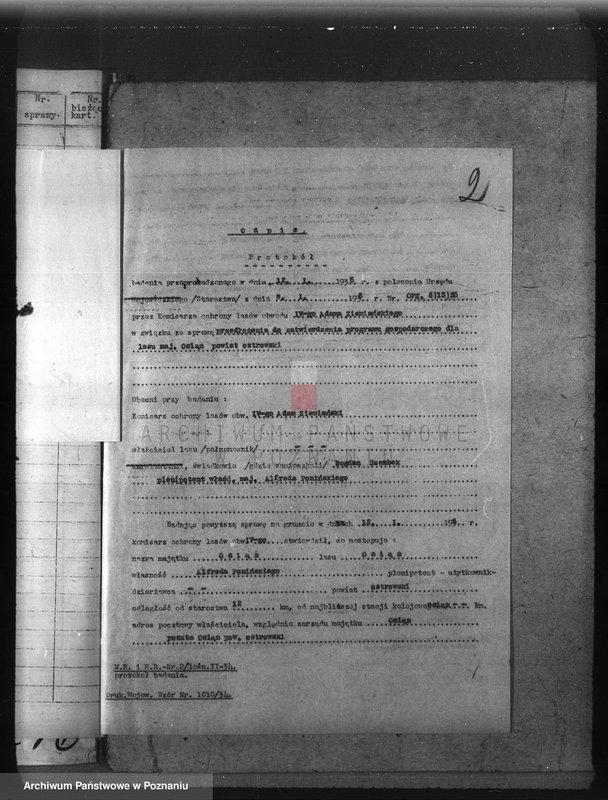 Nr. sprawy.
Nr. bieżąc kart.
2
Odpis.
Protokół
badania przeprowadzonego w dniu 12. 1. 1935 r. z polecenia Urzędu
Wojewódzkiego /Starostwa/ z dnia 1. 193 r. Nr.
przez Komisarza ochrony lasów obwodu IV-go Adama Ziemiańskiego
w związku ze sprawą przedłożenia do zatwierdzenia programu gospodarczego dla
lasu maj. Ociąż powiat ostrowski
Obecni przy badaniu :
Komisarz ochrony lasów obw. IV-go Adam Ziemiański
ARCHIWUM PAŃSTWOWE
W POZNANIU
właściciel lasu /pełnomocnik/ - - -
świadkowie /gdzie zamieszkali/ Bogdan Szembek
plenipotent właśc. maj. Alfreda Ponińskiego
Badając powyższą sprawę na gruncie w dniach 12. 1. 193 r.
komisarz ochrony lasów obw IV-go stwierdził, co następuje :
nazwa majątku Ociąż lasu Ociąż
własność Alfreda Ponińskiego plenipotent - użytkownik-
dzierżawca - - powiat ostrowski
odległość od starostwa 12 km, od najbliższej stacji kolejowej Ociąż km.
adres pocztowy właściciela, względnie zarządu majątku Ociąż
poczta Ociąż pow. ostrowski
M.R. i R.R.-Nr.2/leśn.II-34.
protokół badania.
Druk.Wojew. Wzór Nr. 1010/34.
Archiwum Państwowe w Poznaniu